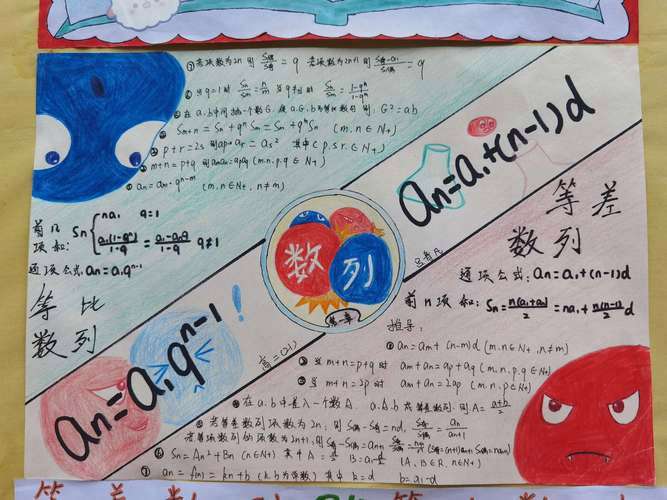 ⑦若项数为2n 则 S偶/S奇 = q 若项数为2n+1 则 S奇-a₁/S偶 = q
⑥当q=1时 Sn/Sm = n/m 当q≠1时 Sn/Sm = 1-qⁿ/1-qᵐ
⑤在a.b中间插一个数G.使a.G.b为等比数列 则:G²=ab
④Sm+n = Sn+qⁿSm = Sm+qᵐSn (m.n∈N+)
③p+r=2s 则ap·ar=as² 其中(p.s.r.∈N+)
②m+n=p+q 则am·an=ap·aq (m.n.p.q∈N+)
①an=am·qⁿ⁻ᵐ (m.n∈N+,n≠m)
前n项和: Sn { na₁ q=1
a₁(1-qⁿ)/1-q = a₁-anq/1-q q≠1
通项公式:an=a₁qⁿ⁻¹
等比
数列
an=a₁qⁿ⁻¹!
数列
第一章
an=a₁+(n-1)d
等差
数列
通项公式:an=a₁+(n-1)d
前n项和:Sn=n(a₁+an)/2=na₁+n(n-1)/2d
推导:
①an=am+(n-m)d (m.n∈N+,n≠m)
②当m+n=p+q时 am+an=ap+aq (m.n.p.q∈N+)
③当m+n=2p时 am+an=2ap (m.n.p∈N+)
④在a.b中差入一个数A.a.A.b成等差数列.则A=a+b/2
⑤若等差数列项数为2n.则S偶-S奇=nd, S奇/S偶=an/an+1
若等差数列的项数为2n+1,则S奇-S偶=an+1 S奇/S偶=n+1/n
⑥Sn=An²+Bn (n∈N+) 其中A=d/2 B=a₁-d/2 (A.B∈R.n∈N+)
⑦an=f(n)=kn+b (k.b为常数) 其中k=d b=a₁-d